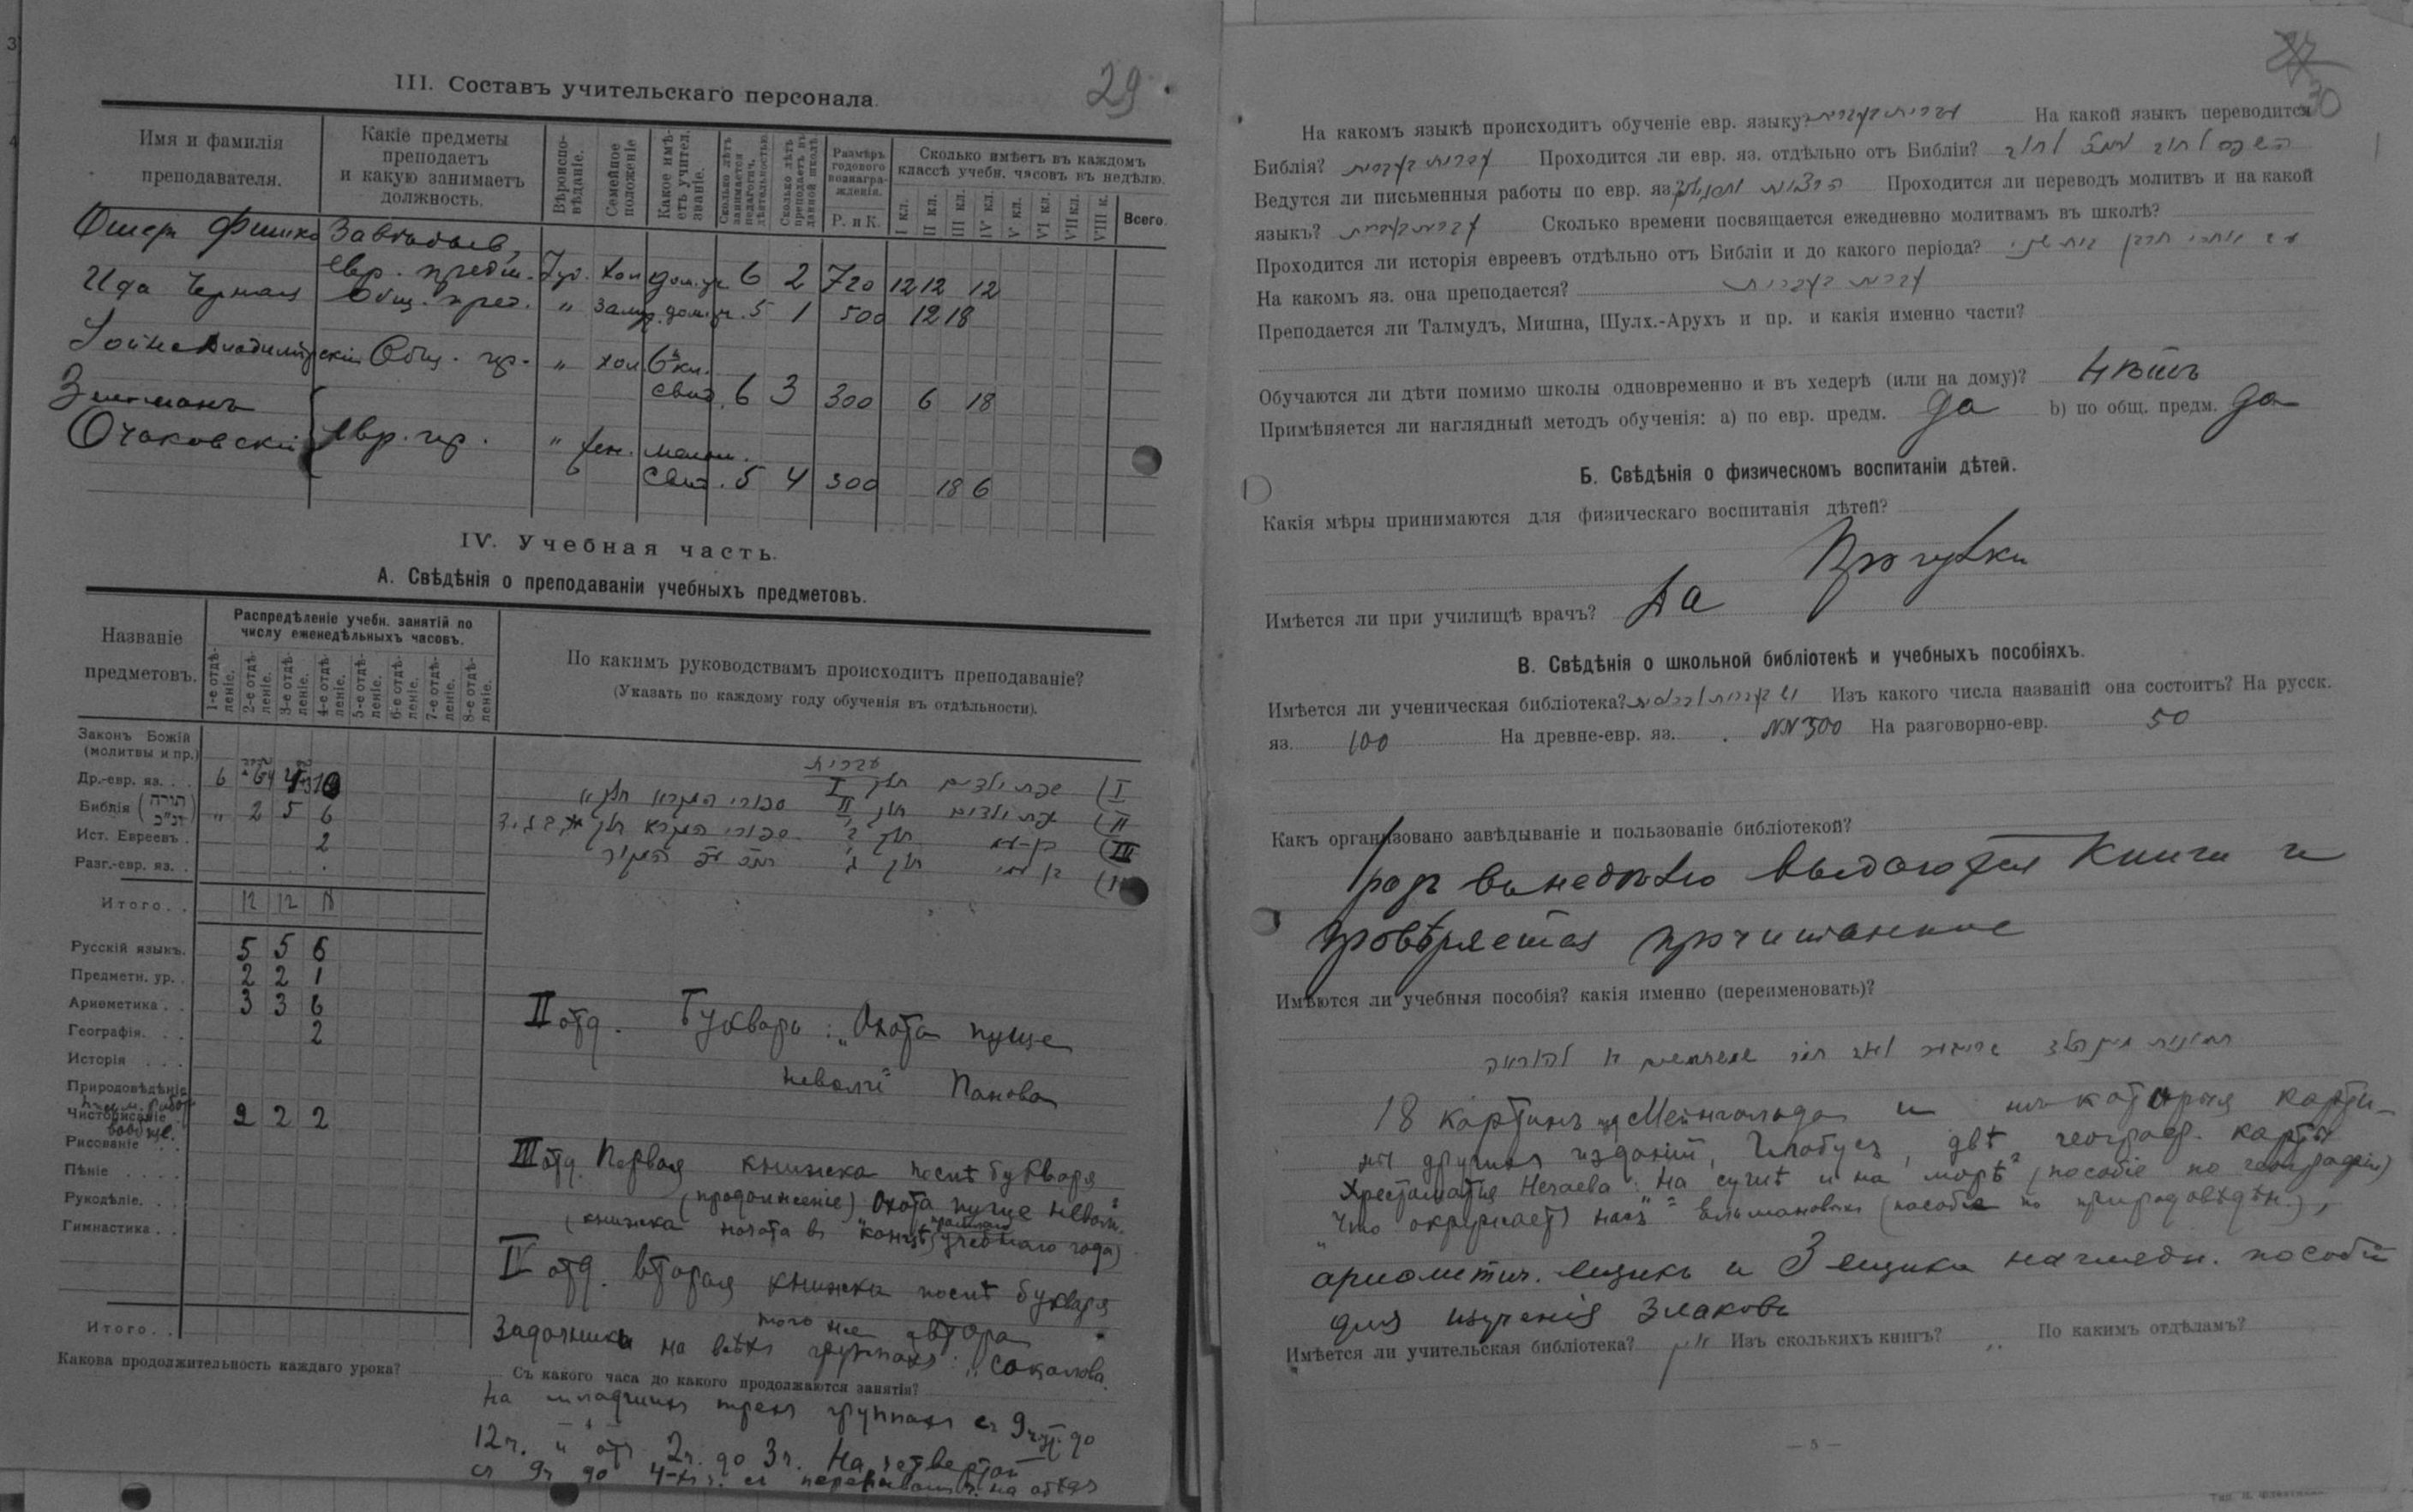 29
III. Составъ учительскаго персонала.
Имя и фамилія преподавателя.
Какіе предметы преподаетъ и какую занимаетъ должность.
Вѣроиспо-вѣданіе.
Семейное положеніе
Какое имѣ-етъ учител. званіе.
Сколько лѣтъ занимается педагогич. дѣятельностью.
Сколько лѣтъ преподаетъ въ данной школѣ
Размѣръ годового вознагра-жденія.
Р. и К.
Сколько имѣетъ въ каждомъ классѣ учебн. часовъ въ недѣлю.
I кл. II кл. III кл. IV кл. V кл. VI кл. VII кл. VIII к. Всего.
Ошер Фишко Завѣдыв.
евр. предм. Іуд. хол. дом. уч. 6 2 720 12 12 12
Ида Черная Общ. пред. " замуж. дом. уч. 5 1 500 12 18
Владимірскій Общ. пр. " хол. 6 кл.
свид. 6 3 300 6 18
Очаковскій Евр. пр. " жен.
свид. 5 4 300 18 6
IV. Учебная часть.
А. Свѣдѣнія о преподаваніи учебныхъ предметовъ.
Названіе предметовъ.
Распредѣленіе учебн. занятій по числу еженедѣльныхъ часовъ.
1-е отдѣ-леніе. 2-е отдѣ-леніе. 3-е отдѣ-леніе. 4-е отдѣ-леніе. 5-е отдѣ-леніе. 6-е отдѣ-леніе. 7-е отдѣ-леніе. 8-е отдѣ-леніе.
По какимъ руководствамъ происходитъ преподаваніе?
(Указать по каждому году обученія въ отдѣльности).
Законъ Божій (молитвы и пр.)
Др.-евр. яз. . . 6
עברית
I) שפת ילדים חלק I
Библія (תורה תנ"כ) " 2 5 6
II) שפת ילדים חלק II ספורי המקרא חלק א
Ист. Евреевъ . 2
III) בן-עמי חלק ב' ספורי המקרא חלק
Разг.-евр. яз. .
בן עמי חלק ג'
Итого . . 12 12
Русскій языкъ. 5 5 6
Предметн. ур. . 2 2 1
Ариѳметика . . 3 3 6
Географія. . . 2
Исторія . . .
Природовѣдѣніе
Чистописаніе . 2 2 2
Рисованіе . .
Пѣніе . . . .
Рукодѣліе. . .
Гимнастика . .
Итого . .
II отд. Букварь: „Охота пуще
неволи" Панова
III отд. Первая книжка послѣ букваря
(продолженіе) Охота пуще невол."
(книжка начата въ концѣ прошлаго учебнаго года)
IV отд. вторая книжка послѣ букваря
того же автора
Задачники на всѣхъ группахъ: Соколова.
Какова продолжительность каждаго урока? Съ какого часа до какого продолжаются занятія?
На младшихъ трехъ группахъ съ 9 ч. до
12 ч. и отъ 2 ч. до 3 ч. На четвертой
съ 9 ч. до 4-хъ ч. съ на обѣдъ
30
На какомъ языкѣ происходитъ обученіе евр. языку? עברית בעברית На какой языкъ переводится
Библія? עברית בעברית Проходится ли евр. яз. отдѣльно отъ Библіи?
Ведутся ли письменныя работы по евр. яз. Проходится ли переводъ молитвъ и на какой
языкъ? עברית בעברית Сколько времени посвящается ежедневно молитвамъ въ школѣ?
Проходится ли исторія евреевъ отдѣльно отъ Библіи и до какого періода? עד אחרי חרבן בית שני
На какомъ яз. она преподается? עברית בעברית
Преподается ли Талмудъ, Мишна, Шулх.-Арухъ и пр. и какія именно части?
Обучаются ли дѣти помимо школы одновременно и въ хедерѣ (или на дому)? Нѣтъ
Примѣняется ли наглядный методъ обученія: a) по евр. предм. да b) по общ. предм. да
Б. Свѣдѣнія о физическомъ воспитаніи дѣтей.
Какія мѣры принимаются для физическаго воспитанія дѣтей?
Прогулки
Имѣется ли при училищѣ врачъ? Да
В. Свѣдѣнія о школьной библіотекѣ и учебныхъ пособіяхъ.
Имѣется ли ученическая библіотека? Изъ какого числа названій она состоитъ? На русск.
яз. 100 На древне-евр. яз. NN 300 На разговорно-евр. 50
Какъ организовано завѣдываніе и пользованіе библіотекой?
разъ въ недѣлю выдаются книги и
провѣряется прочитанное
Имѣются ли учебныя пособія? какія именно (переименовать)?
18 картинъ Мейнгольда и нѣкоторыя карти-
ны другихъ изданій, Глобусъ, двѣ географ. карты
Хрестоматія Нечаева „На сушѣ и на морѣ" (пособіе по географіи)
„Что окружаетъ насъ" (пособіе по природовѣдѣн.),
ариѳметич. ящикъ и 3 ящика наглядн. пособій
для изученія злаковъ
Имѣется ли учительская библіотека? אין Изъ сколькихъ книгъ? По какимъ отдѣламъ?
— 5 —